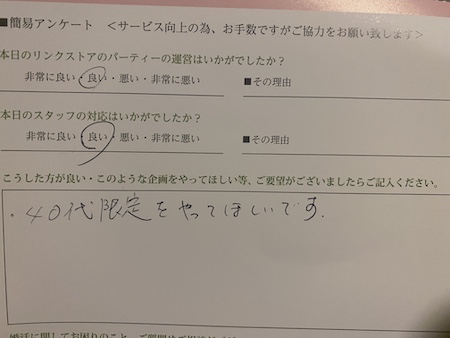 ■簡易アンケート　＜サービス向上の為、お手数ですがご協力をお願い致します＞
本日のリンクストアのパーティーの運営はいかがでしたか？
非常に良い・良い・悪い・非常に悪い　■その理由
本日のスタッフの対応はいかがでしたか？
非常に良い・良い・悪い・非常に悪い　■その理由
こうした方が良い・このような企画をやってほしい等、ご要望がございましたらご記入ください。
・40代限定をやってほしいです.